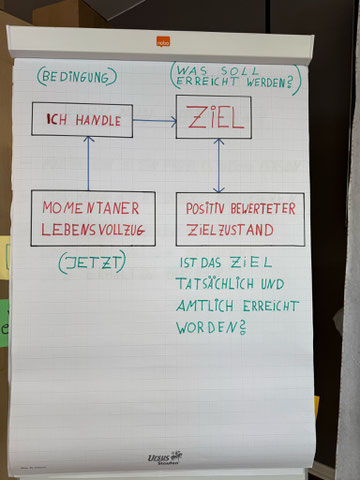 nobo
(BEDINGUNG)
(WAS SOLL
ERREICHT WERDEN?)
ICH HANDLE
ZIEL
MOMENTANER
LEBENSVOLLZUG
POSITIV BEWERTETER
ZIELZUSTAND
(JETZT)
IST DAS ZIEL
TATSÄCHLICH UND
AMTLICH ERREICHT
WORDEN?
Ursus